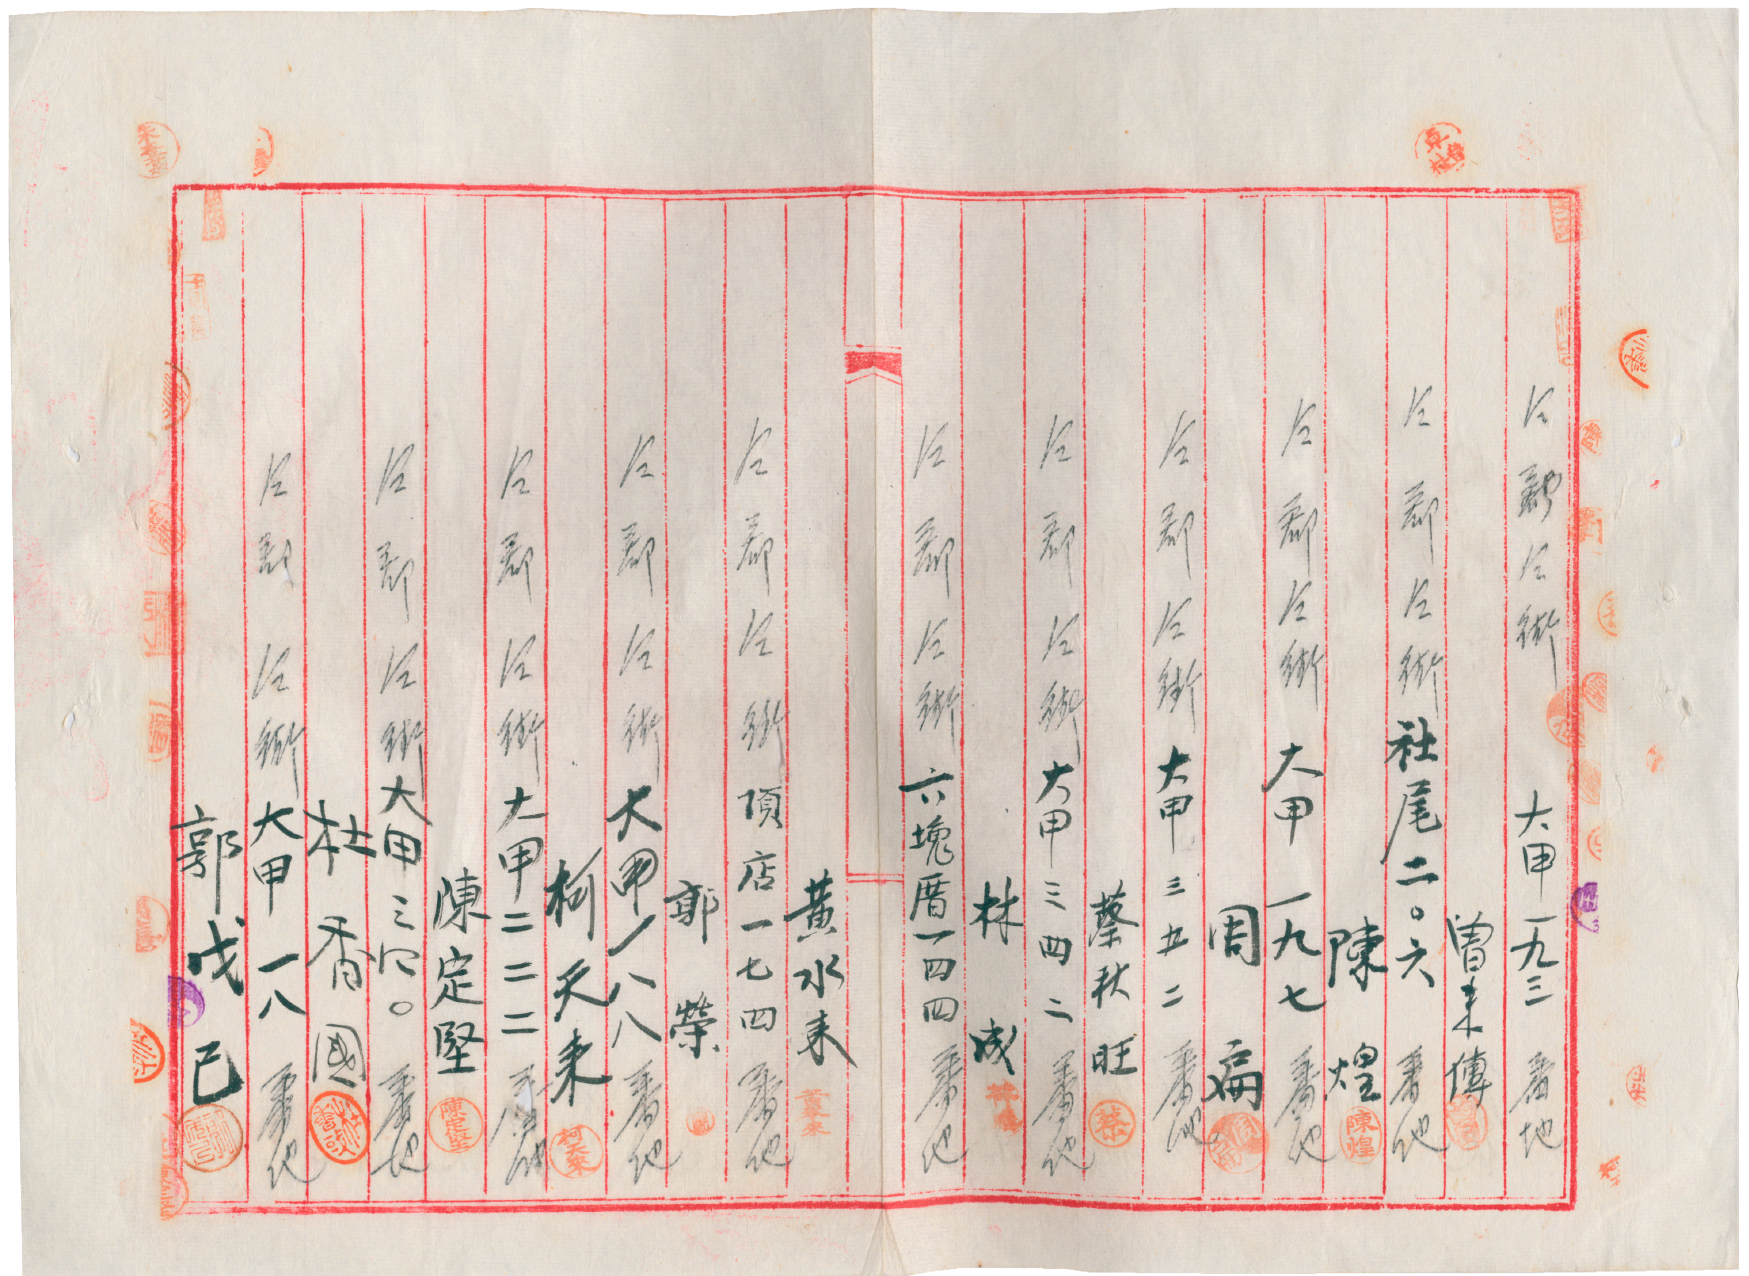 仝郡仝街大甲一九三番地
曾来傳
仝郡仝街社尾二〇六番地
陳煌
仝郡仝街大甲一九七番地
周扁
仝郡仝街大甲三五二番地
蔡秋旺
仝郡仝街大甲三四二番地
林成
仝郡仝街六塊厝一四四番地
黃水来
仝郡仝街頂店一七四番地
郭榮
仝郡仝街大甲一八八番地
柯天来
仝郡仝街大甲二二二番地
陳定堅
仝郡仝街大甲三四〇番地
杜香國
仝郡仝街大甲一八番地
郭戊己